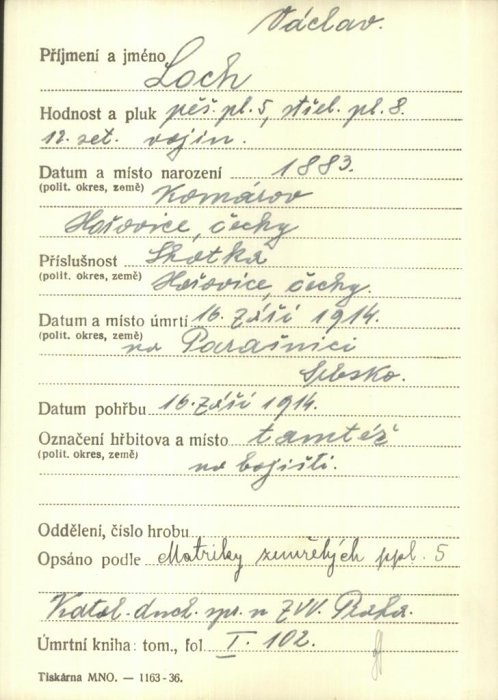 Václav.
Příjmení a jméno Loch
Hodnost a pluk pěš. pl. 5, střel. pl. 8.
12. set. vojín.
Datum a místo narození 1883.
(polit. okres, země) Komárov
Hořovice, Čechy
Příslušnost Lhotka
(polit. okres, země) Hořovice, Čechy.
Datum a místo úmrtí 16. září 1914.
(polit. okres, země) na Parašnici
Srbsko.
Datum pohřbu 16. září 1914.
Označení hřbitova a místo tamtéž
(polit. okres, země) na bojišti.
Oddělení, číslo hrobu
Opsáno podle Matriky zemřelých ppl. 5
Katol. duch. spr. u ZVV. Praha.
Úmrtní kniha: tom., fol. I. 102.
Tiskárna MNO. — 1163-36.